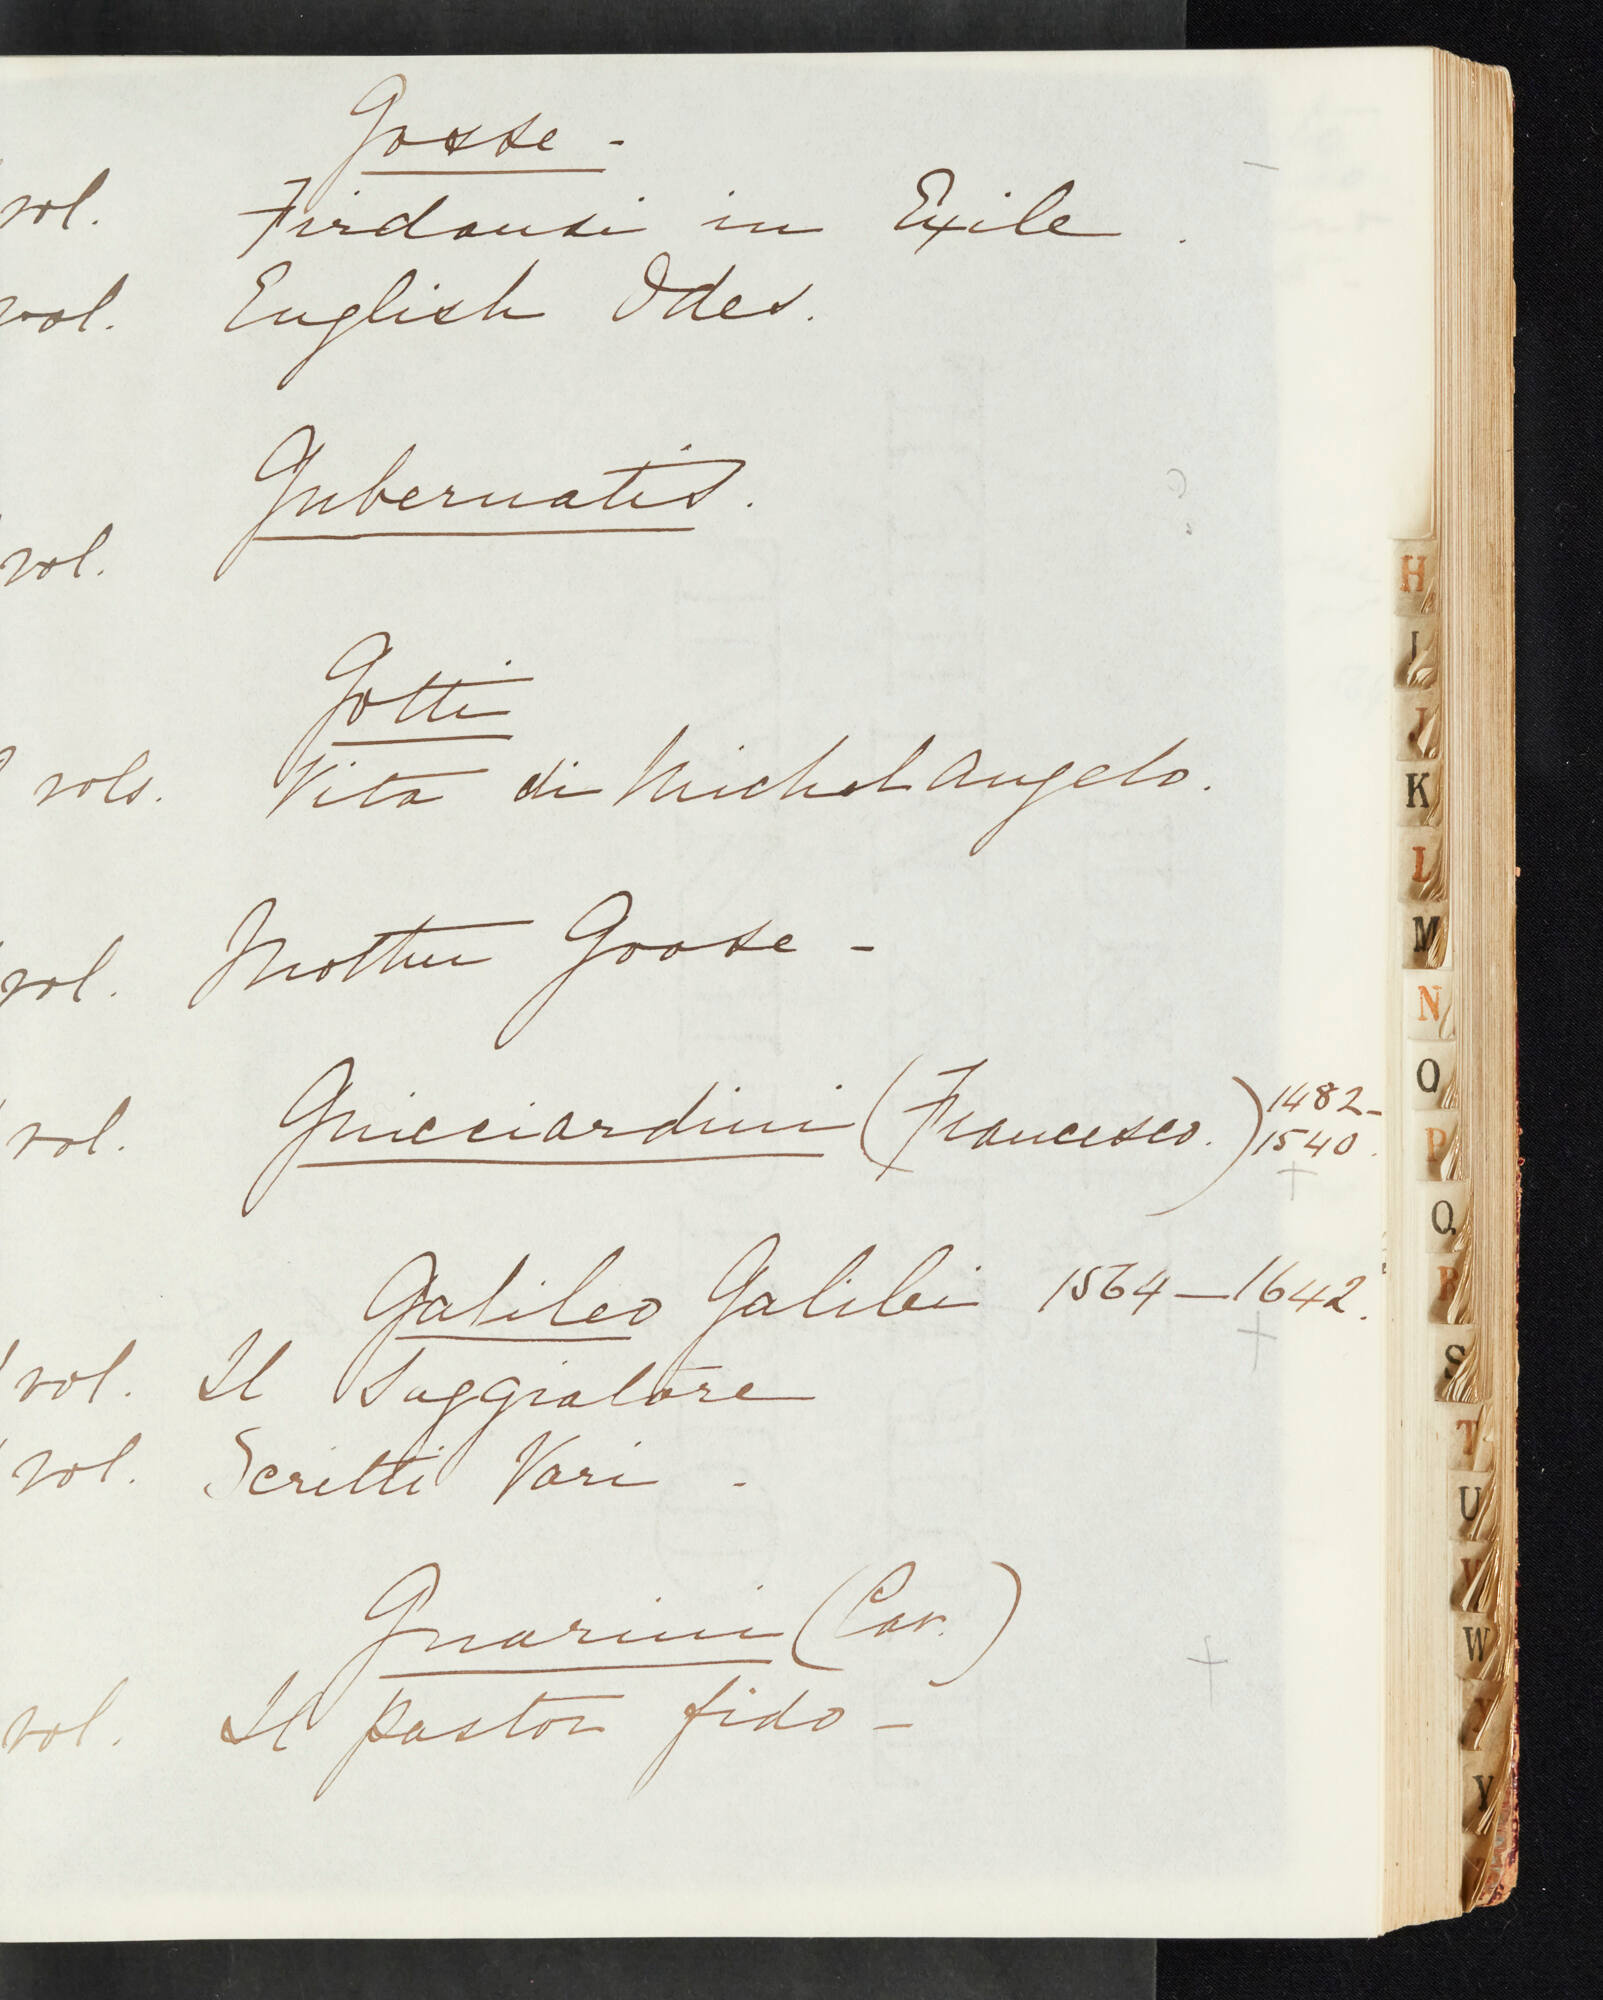 Gosse -
vol. Firdausi in Exile.
vol. English Odes.
Gubernatis.
vol.
Gotti
vols. Vita di Michel Angelo.
vol. Mother Goose -
vol. Guicciardini (Francesco.) 1482-
1540.
Galileo Galilei 1564-1642.
vol. Il Saggiatore
vol. Scritti Vari -
Guarini (Cav.)
vol. Il pastor fido -
H
I
J
K
L
M
N
O
P
Q
R
S
T
U
V
W
Y